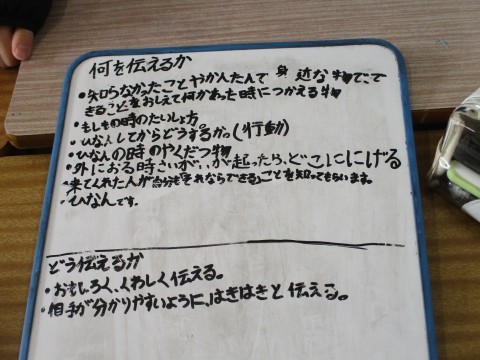 何を伝えるか
・知らなかったことやかんたんで身近な物でで
きることをおしえて何かあった時につかえる物
・もしもの時のたいしょ方
・ひなんしてからどうするか。(行動)
・ひなんの時のやくだつ物
・外におる時さいがいが起ったら、どこににげる
・来てくれた人が「自分もそれならできる」ことを知ってもらいます。
・ひなんです。
どう伝えるか
・おもしろく、くわしく伝える。
・相手が分かりやすいように、はきはきと伝える。